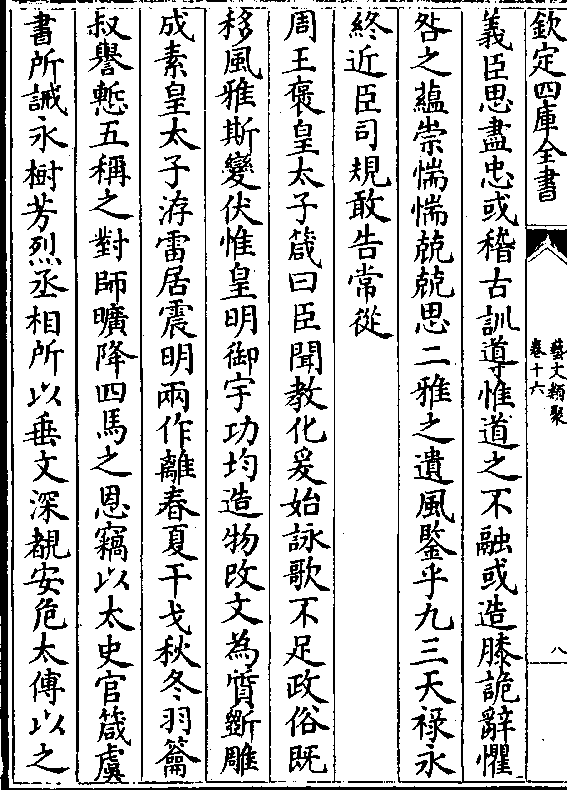 欽定四庫全書
藝文類聚
卷十六
八
義臣思盡忠或稽古訓導惟道之不融或造膝詭辭懼
咎之蘊崇惴惴兢兢思二雅之遺風鑒乎九三天祿永
終近臣司規敢告常從
周王褒皇太子箴曰臣聞教化爰始詠歌不足政俗既
移風雅斯變伏惟皇明御宇功均造物改文為質斵雕
成素皇太子洊雷居震明兩作離春夏干戈秋冬羽籥
叔譽慙五稱之對師曠降四馬之恩竊以太史官箴虞
書所誡永樹芳烈丞相所以垂文深覩安危太傅以之